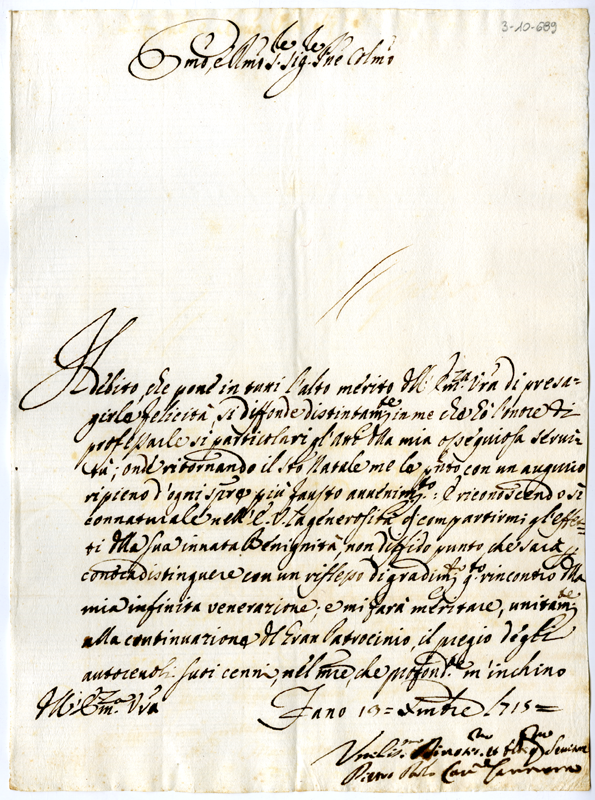 3-10-689
Emo, e Rmo Sig.re Sig.re Pne Colmo
Il debito, che pone in tutti l'alto merito dell'Emza Vra di presa-
girle felicità, si diffonde distintamte in me che hò l'onore di
professarle si particolari gl'Atti della mia ossequiosa servi-
tù; onde ritornando il Sto Natale me le pnto con un augurio
ripieno d'ogni sempre più fausto avvenimto: E riconoscendosi
connaturale nell'E. V. la generosità di compartirmi gl'effet-
ti della sua innata Benignità, non diffido punto che sarà p
contradistinguere con un riflesso di gradimto qto rincontro della
mia infinita venerazione; e mi farà meritare, unitamte
alla continuazione del Gran Patrocinio, il pregio degli
autorevoli suoi cenni, nel mre, che profondte m'inchino
Dell'Emza Vra
Fano 19 = Xmbre 1715 =
Umiliss. Divotmo et Servitore
Pietro Paolo